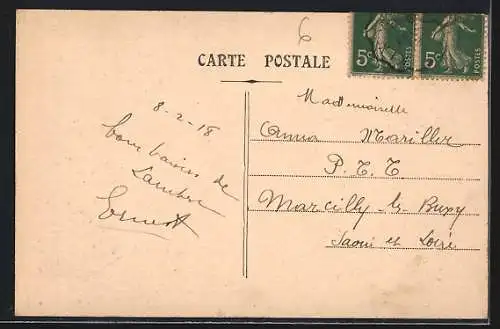 6
CARTE POSTALE
5c
5c
POSTES
POSTES
8-2-18
bons baisers de
Ernest
Mademoiselle
Anna Mariller
P.T.T
Marcilly-les Buxy
Saone et Loire